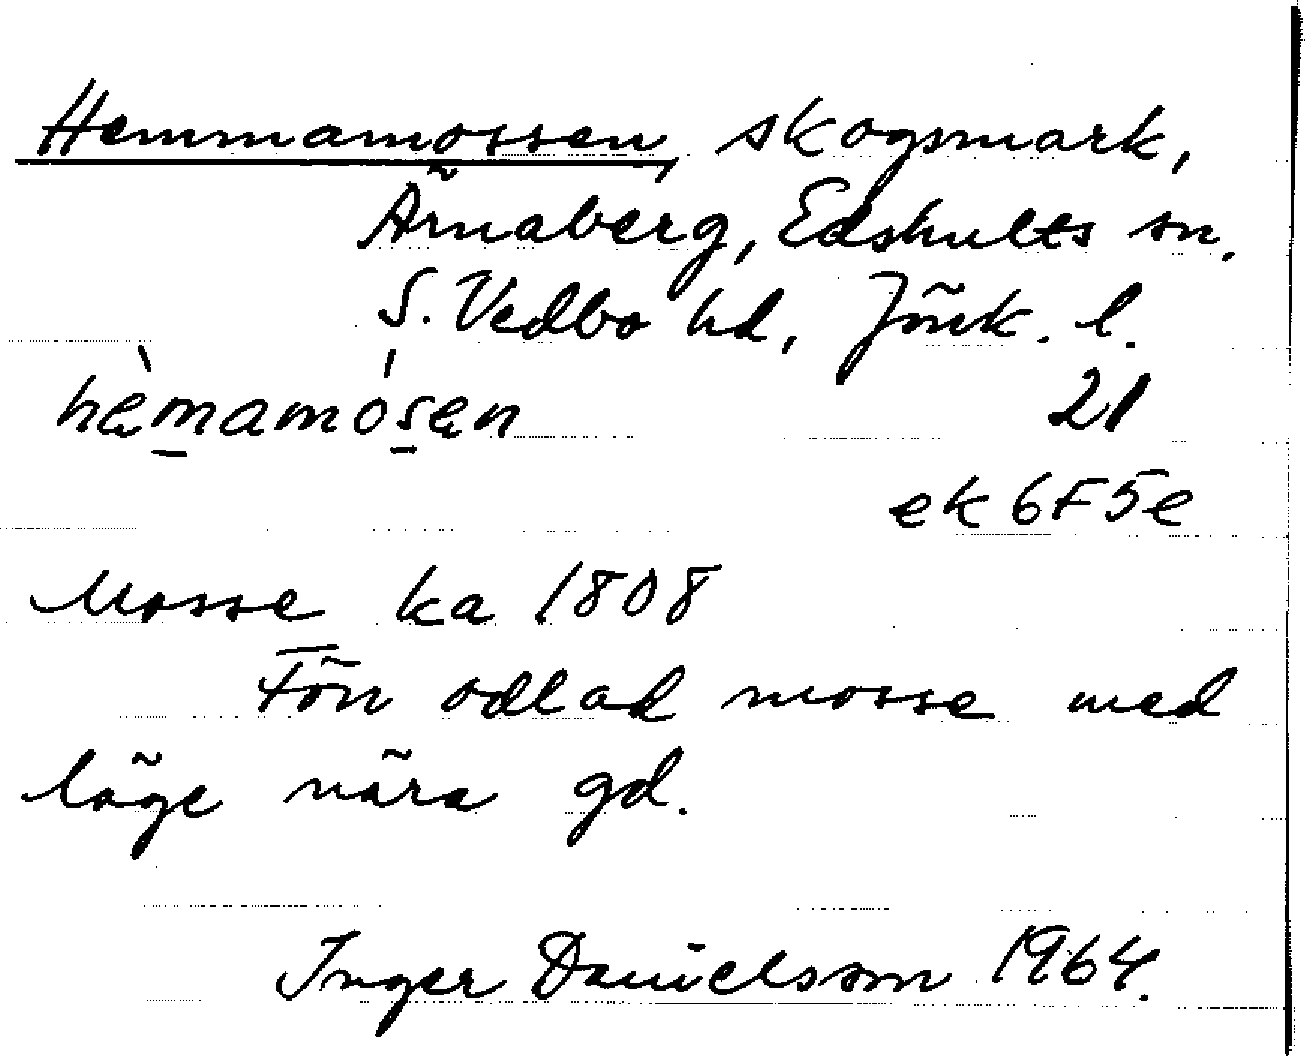 Hemmamossen, skogsmark,
Ärnaberg, Edshults sn.
S. Vedbo hd, Jönk. l.
hèmamósen 21
ek 6F5e
Mosse ka 1808
Förr odlad mosse med
läge nära gd.
Inger Danielsson 1964.